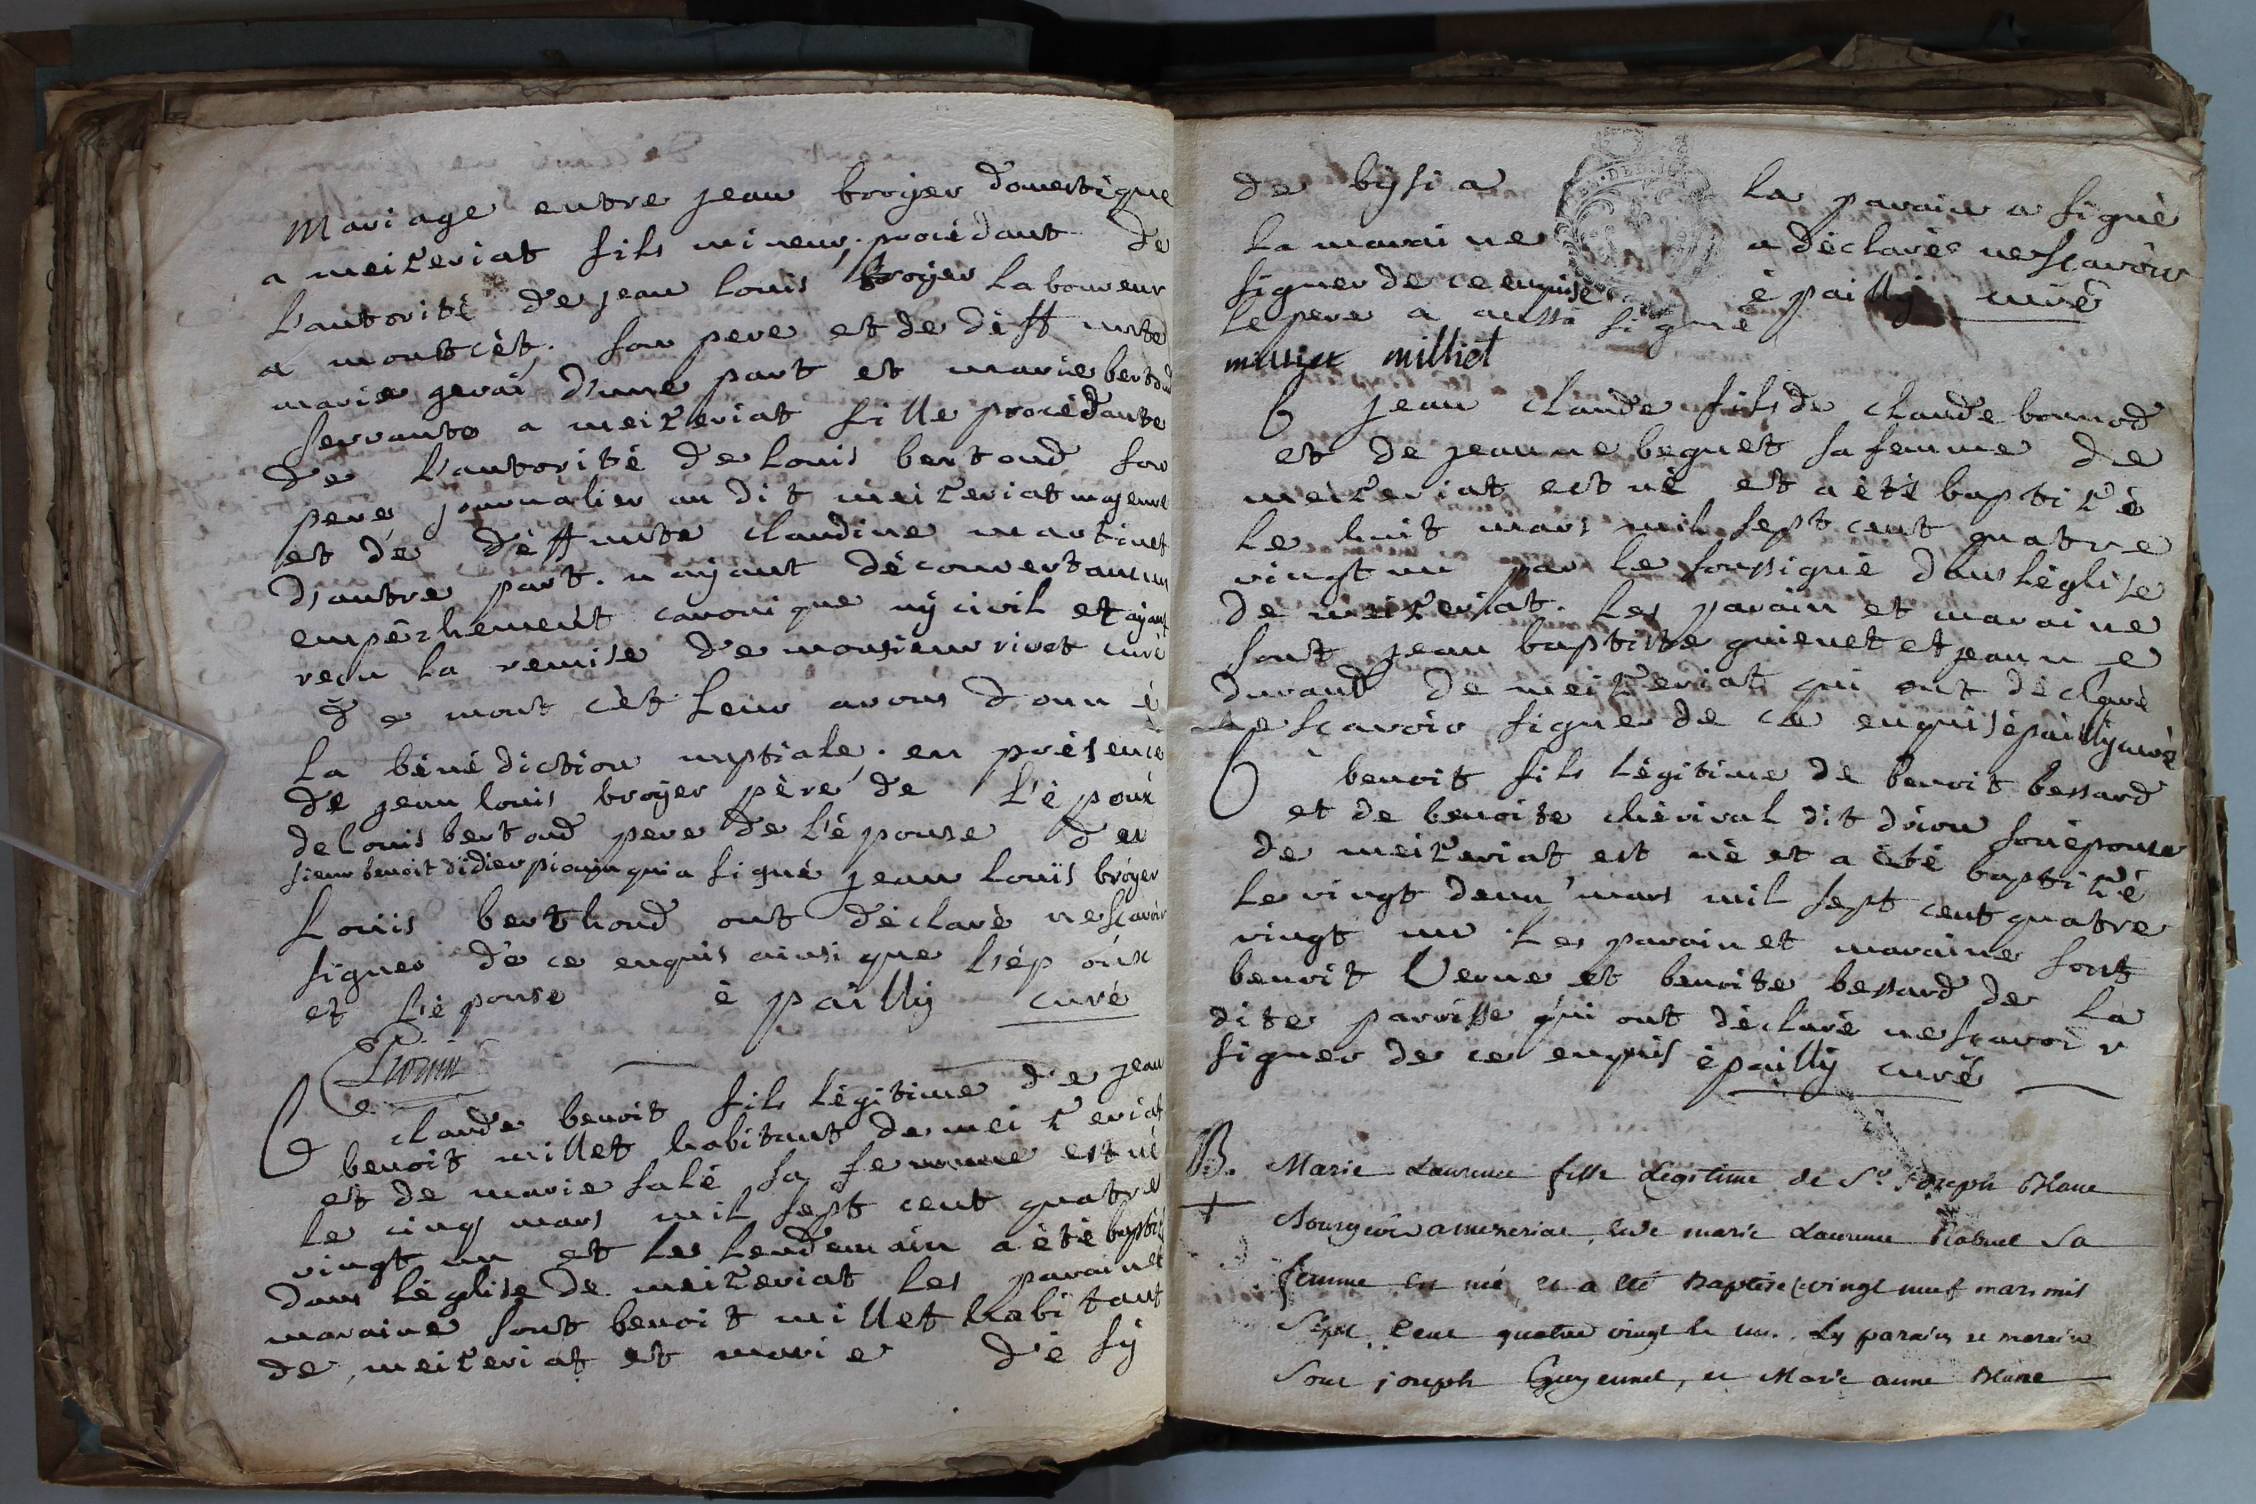 Mariage entre jean broyer domestique
a meizeriat fils mineur, procédant de
l'autorité de jean louis broyer laboureur
a montcèt. son pere et de deffunte
marie gerai d'une part et marie bertoud
servante a meizeriat fille procédante
de l'autorité de louis bertoud son
pere journalier au dit meizeriat majeure
et de deffunte claudine martinet
d'autre part. n'ayant découvert aucun
empêchement canonique ny civil et ayant
recu la remise de monsieur rivet curé
de mont cèt leur avons donné
la bénédiction nuptiale. en présence
de jean louis broyer père de l'époux
de louis bertoud pere de l'épouse de
sieur benoit didier pionin qui a signé jean louis broyer
louis berthoud ont déclaré ne scavoir
signer de ce enquis ainsi que l'époux
et l'épouse è pailly curé
Pionin
B claude benoit fils légitime de jean
benoit millet habitant de meizeriat
et de marie salé sa femme est né
le cinq mars mil sept cent quatre
vingt un et le lendemain a été baptisé
dans l'église de meizeriat les parain et
maraine sont benoit millet habitant
de meizeriat et marie désy
de bysia le parain a signé
la maraine a déclaré ne scavoir
signer de ce enquise è pailly curé
le pere a aussi signé
milliet milliet
B jean claude fils de claude bonnod
et de jeanne beguet sa femme de
meizeriat est né et a été baptizé
le huit mars mil sept cent quatre
vingt un par le soussigné dans l'église
de meizeriat. les parain et maraine
sont jean baptiste guienet et jeanne
durand de meizeriat qui ont déclaré
ne scavoir signer de ce enquis è pailly curé
B benoit fils légitime de benoit bessard
et de benoite chérival dit drion son épouse
de meizeriat est né et a été baptizé
le vingt deux mars mil sept cent quatre
vingt un les parain et maraine sont
benoit Verne et benoite bessard de la
dite parroisse qui ont déclaré ne scavoir
signer de ce enquis è pailly curé
B. Marie Laurence fille Légitime de Sr. Joseph Blanc
+ Bourgeois a mezeriat, et de marie Laurence sa
femme est né et a été Baptisé le vingt neuf mars mil
Sept Cent quatre vingt et un. Ly parain et marein
Sont joseph Guyennet, et Marie anne Blanc